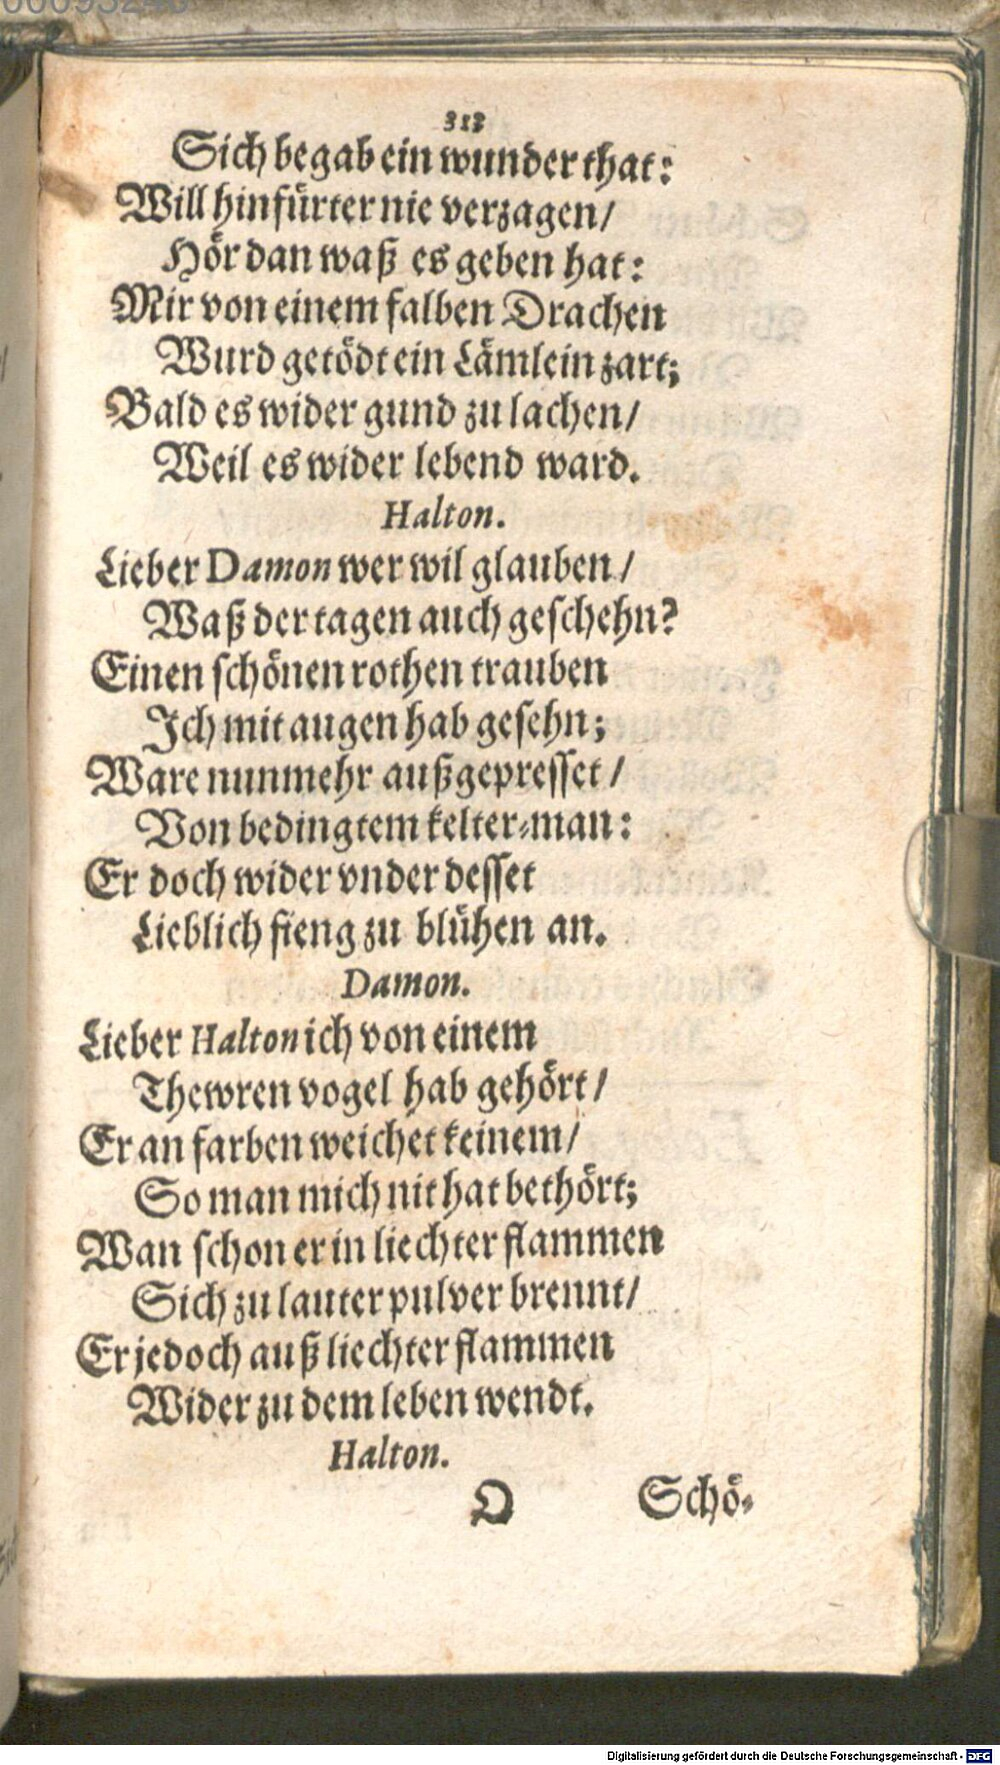 313
Sich begab ein wunder that:
Will hinfürter nie verzagen/
Hör dan waß es geben hat:
Mir von einem falben Drachen
Wurd getödt ein Lämlein zart;
Bald es wider gund zu lachen/
Weil es wider lebend ward.
Halton.
Lieber Damon wer wil glauben/
Waß der tagen auch geschehn?
Einen schönen rothen trauben
Ich mit augen hab gesehn;
Ware nunmehr außgepresset/
Von bedingtem kelter-man:
Er doch wider vnder desset
Lieblich fieng zu blühen an.
Damon.
Lieber Halton ich von einem
Thewren vogel hab gehört/
Er an farben weichet keinem/
So man mich nit hat bethört;
Wan schon er in liechter flammen
Sich zu lauter pulver brennt/
Er jedoch auß liechter flammen
Wider zu dem leben wendt.
Halton.
O Schö-
Digitalisierung gefördert durch die Deutsche Forschungsgemeinschaft - DFG